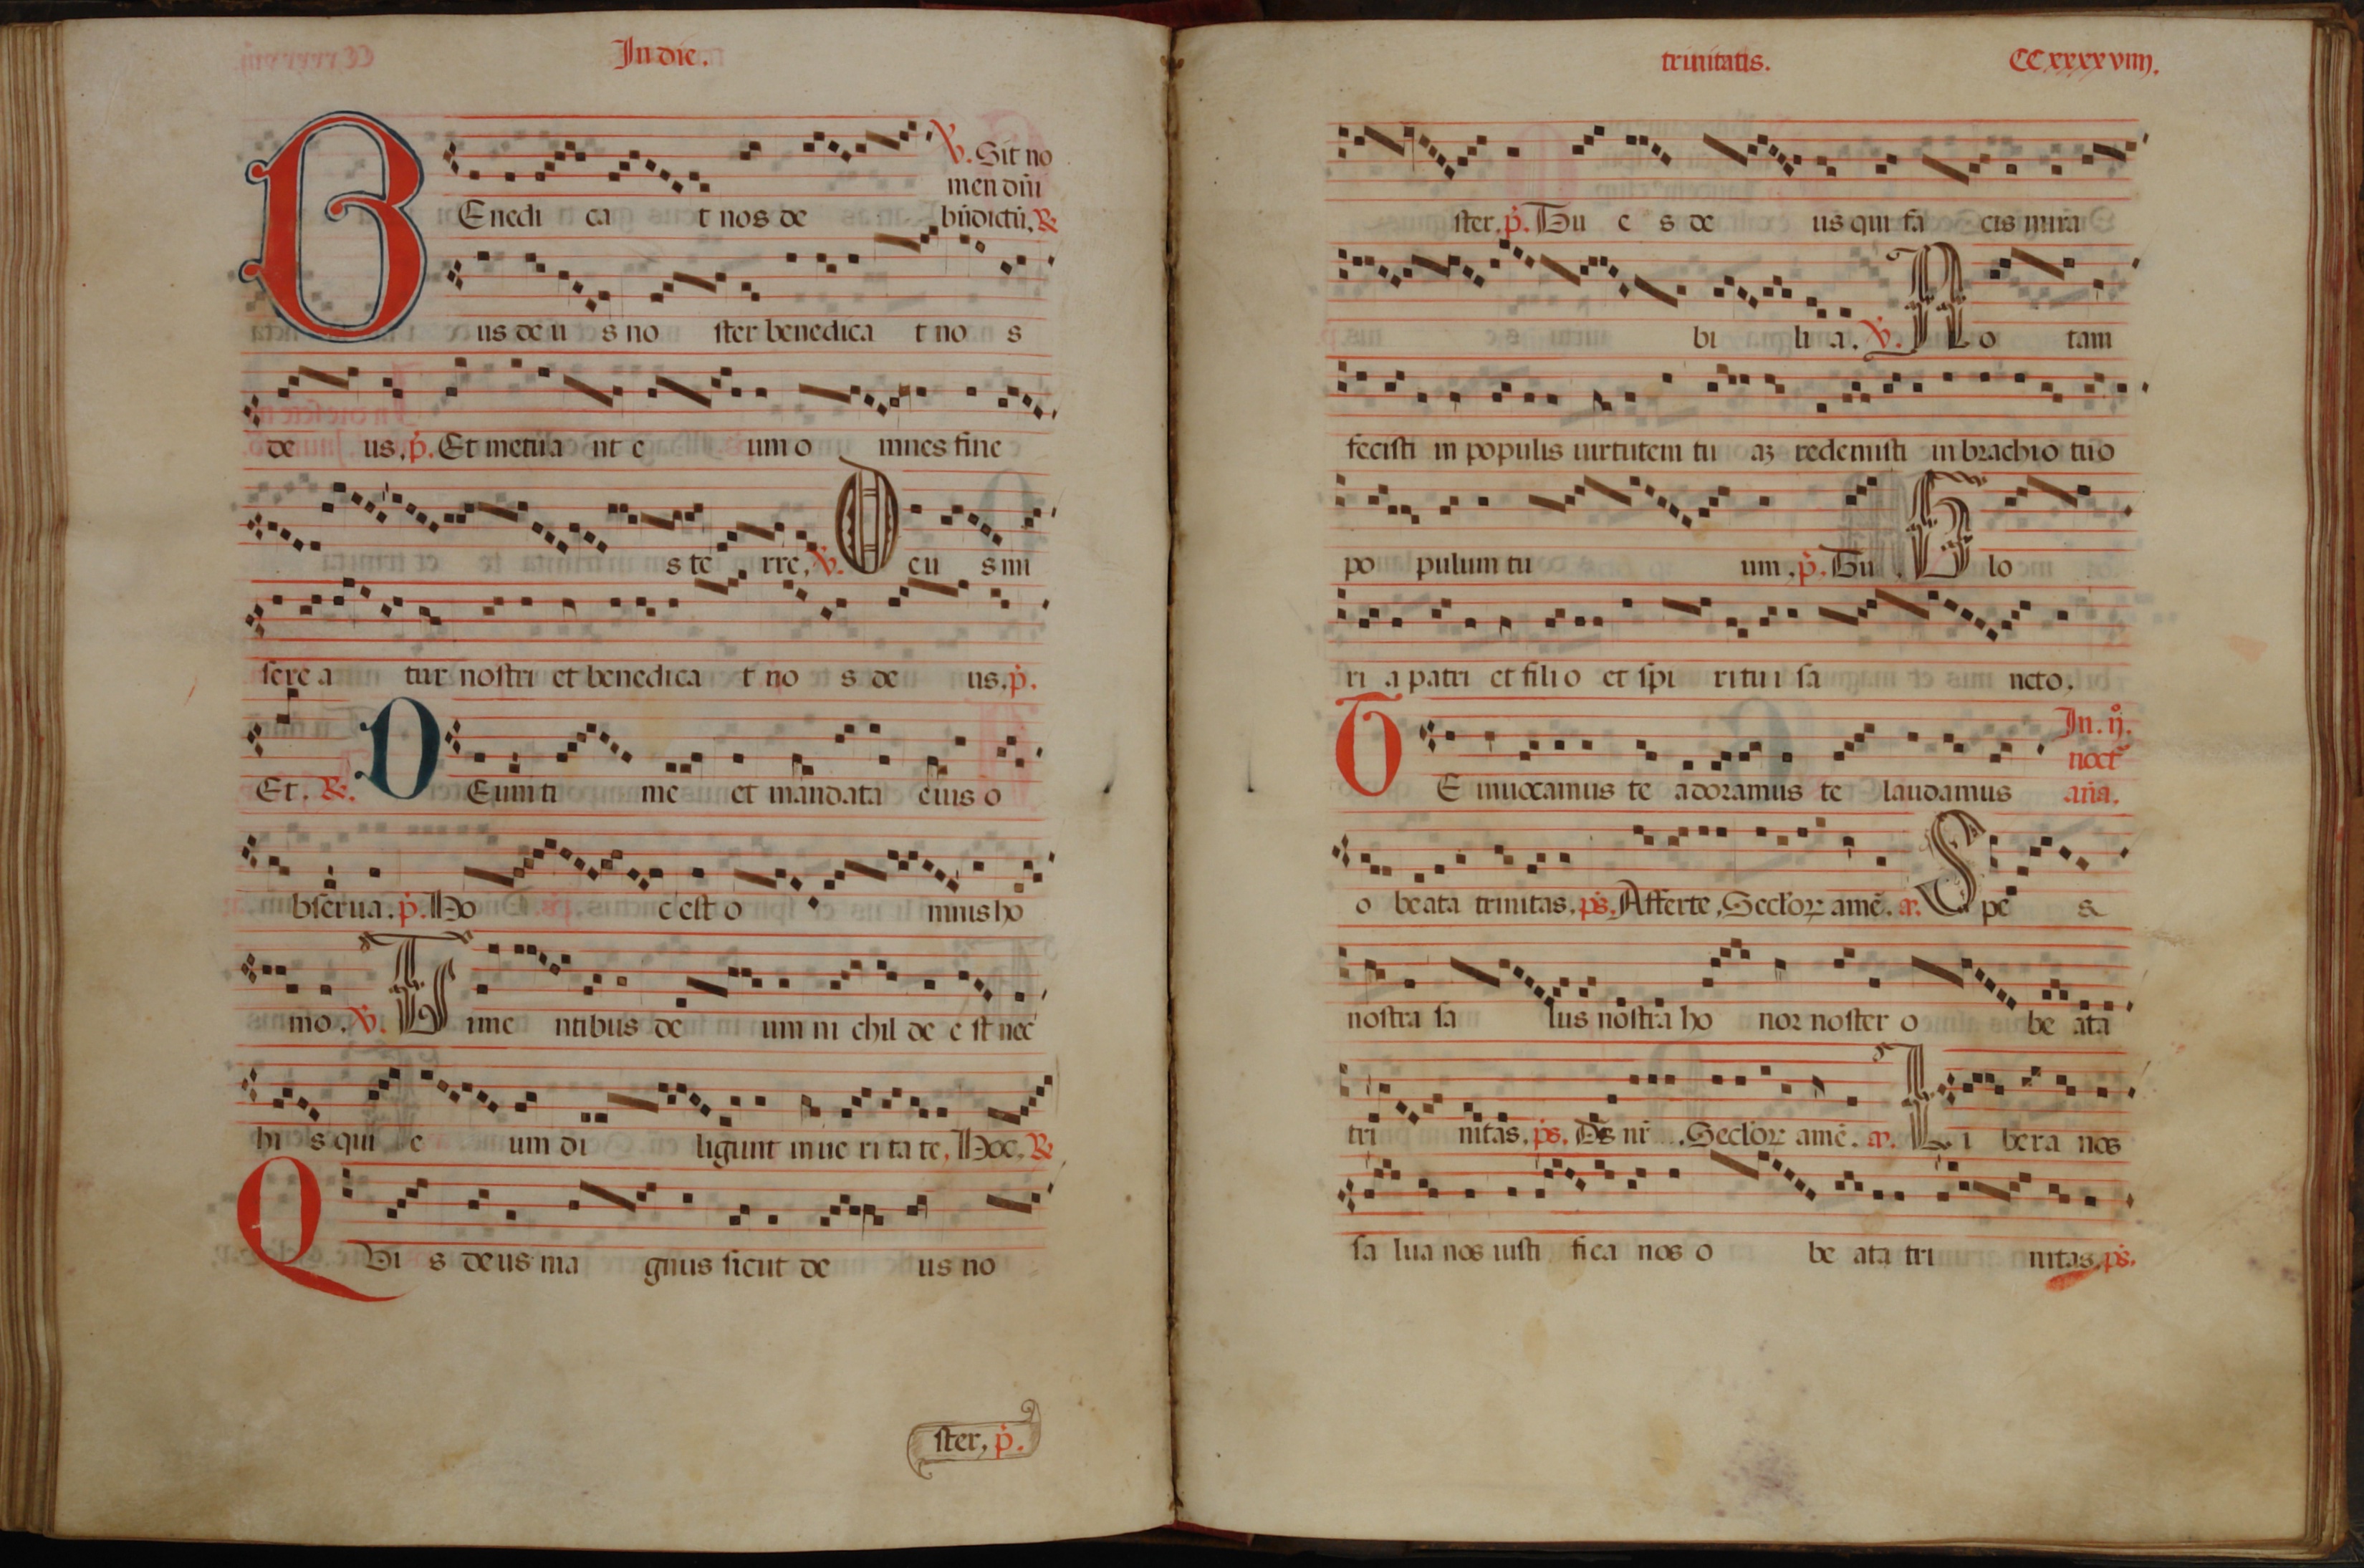 In die.
V. Sit no
men dñi
BEnedi ca t nos de bñdictū. R
us de u s no ster benedica t no s
de us. p. Et metua nt e um o mnes fine
s te rre. V. Deu s mi
sere a tur nostri et benedica t no s de us. p.
Et. R. DEum ti me et mandata eius o
bserua. p. Hoc est o mnis ho
mo. V. Time ntibus de um ni chil de e st nec
hi s qui e um di ligunt in ue ri ta te. Hoc. R
QVi s deus ma gnus sicut de us no
ster, p.
trinitatis. CCxxxxviiij.
ster. p. Tu e s de us qui fa cis mira
bi li a. V. No tam
fecisti in populis uirtutem tu aʒ redemisti in brachio tuo
po pulum tu um. p. Tu. Glo
ri a patri et filio et spi ritui sa ncto.
In. ij.
noct̄
TE inuocamus te adoramus te laudamus aña.
o beata trinitas. ps. Afferte. Secl'oꝝ amē. a. Spe s
nostra sa lus nostra ho nor noster o be ata
tri nitas. ps. Ds nr̄. Secl'oꝝ amē. a. Li bera nos
sa lua nos iusti fica nos o be ata tri nitas. ps.